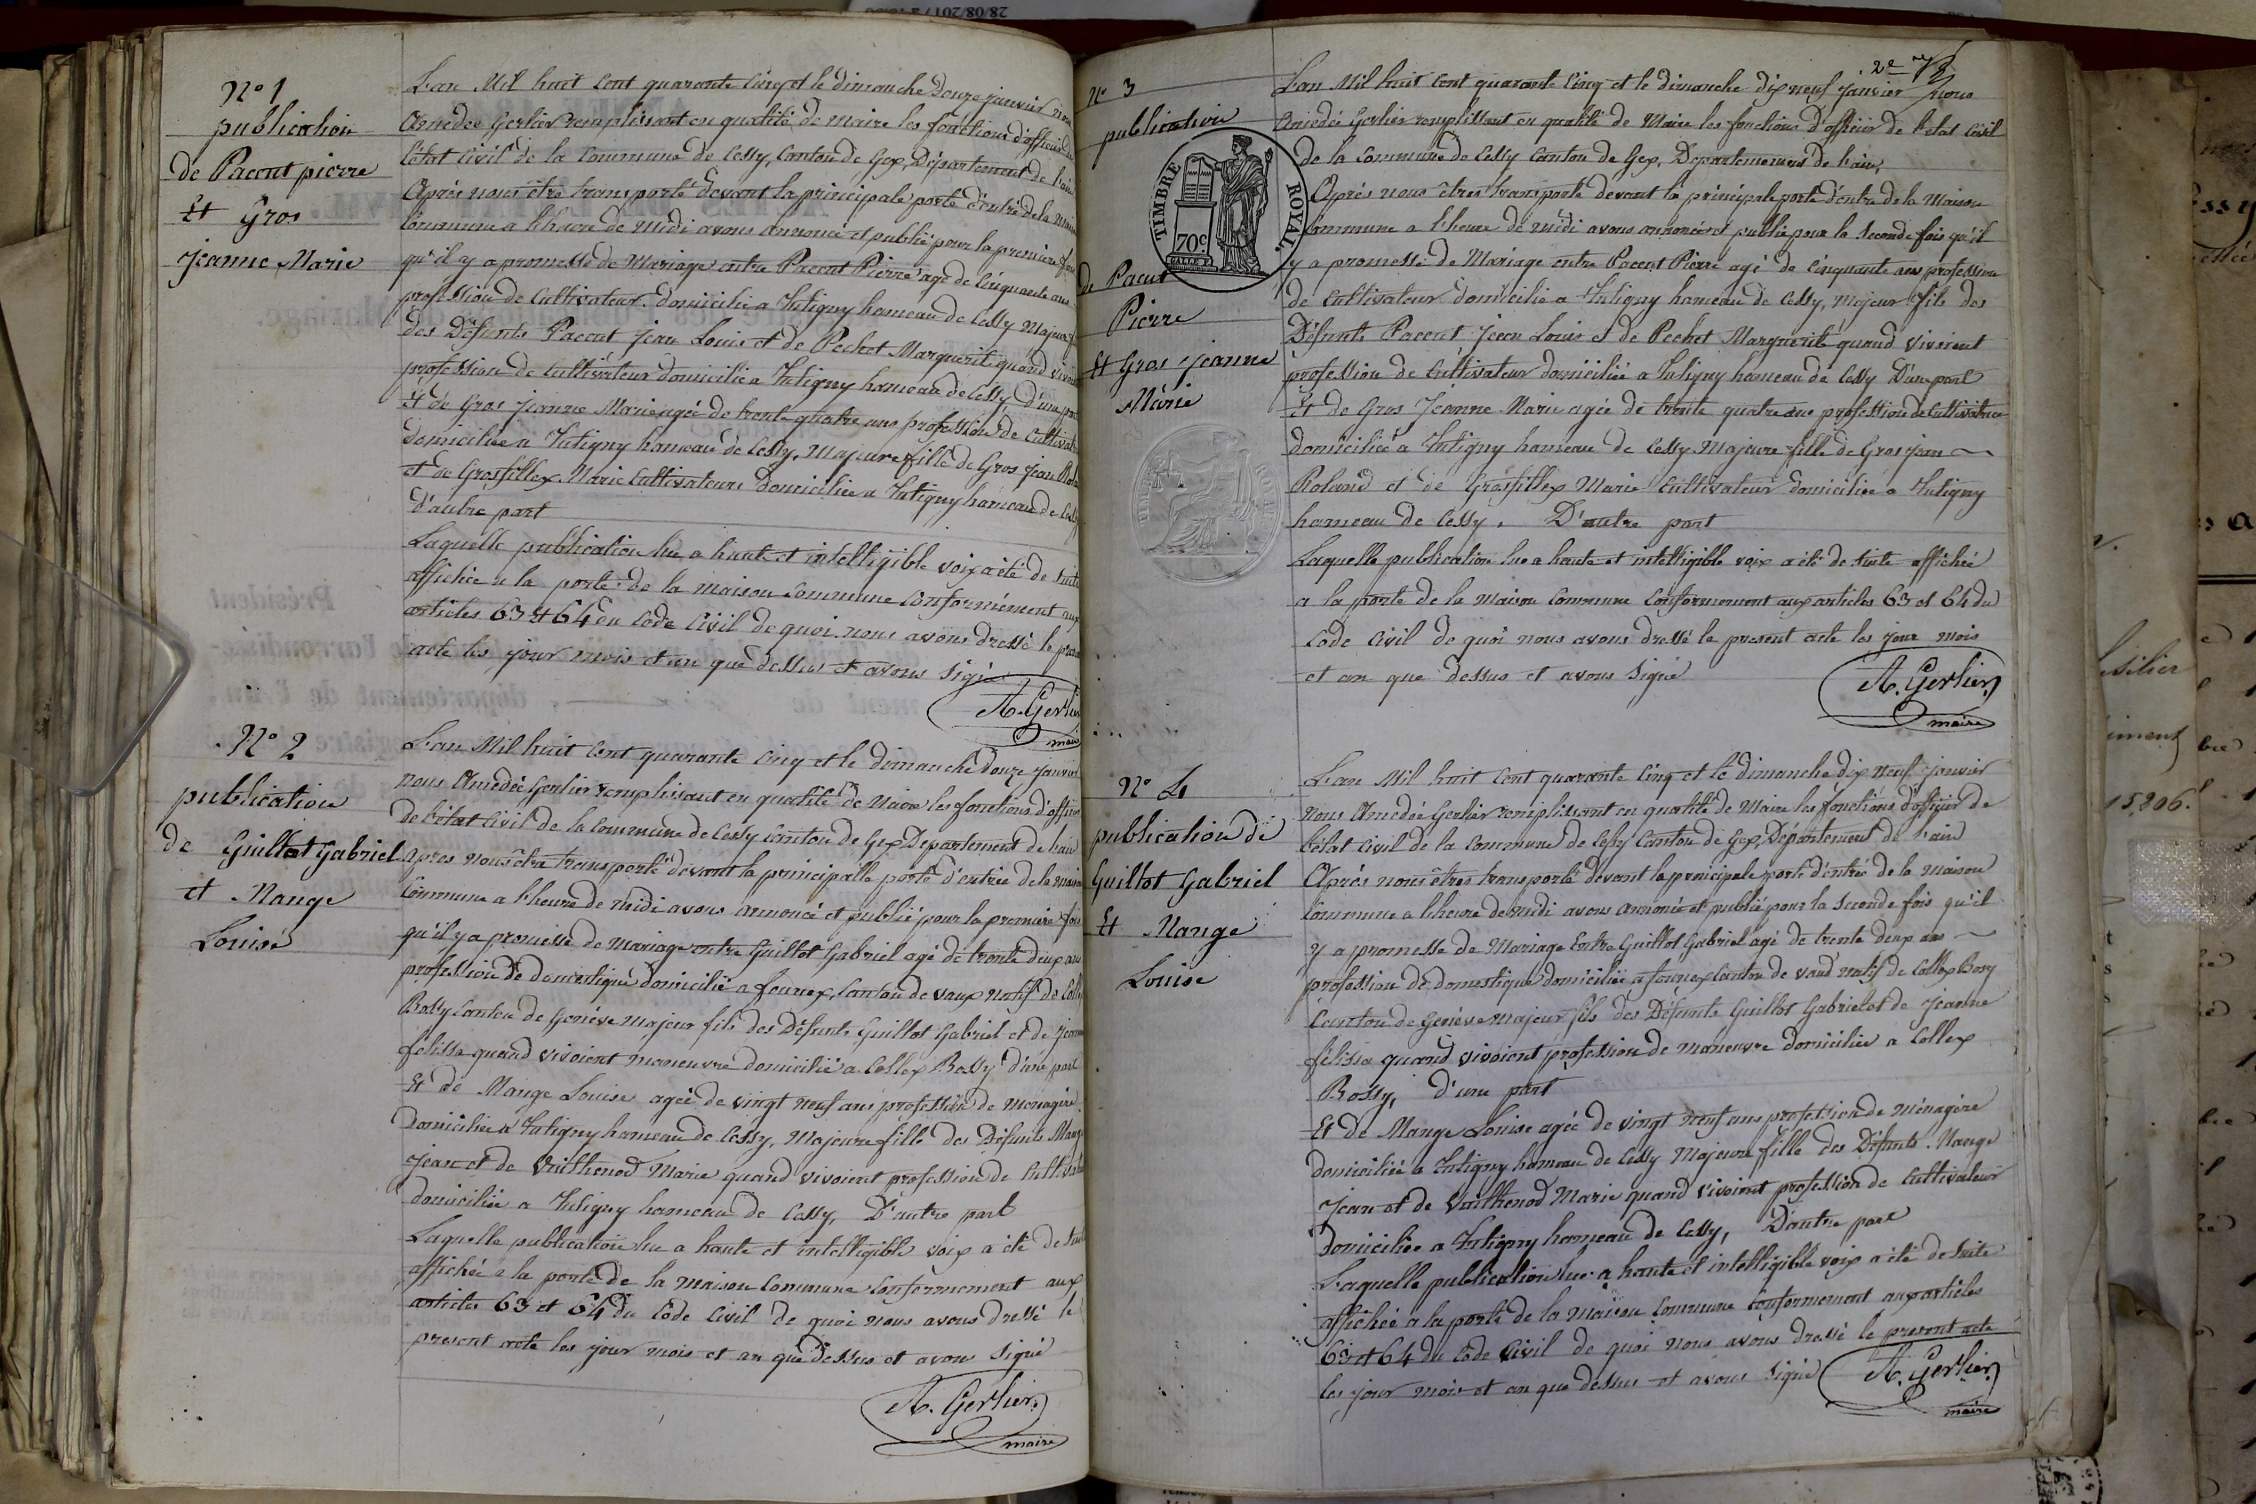 N° 1
publication
de Pacent pierre
Et Gros
Jeanne Marie
L'an Mil huit Cent quarante Cinq et le dimanche douze janvier nous
Amedée Gerlier remplissant en qualité de maire les fonctions d'officier de
l'état Civil de la Commune de Cessy, Canton de Gex, Département de l'ain
Après nous être transporté devant la principale porte d'entré de la Maison
Commune a l'heure de Midi avons Annoncé et publié pour la première fois
qu'il y a promesse de Mariage entre Pacent Pierre agé de Cinquante ans
profession de Cultivateur domicilié a Tutigny hameau de Cessy Majeur fils
des Défunts Pacent Jean Louis et de Pechet Marguerite quand vivoient
profession de Cultivateur domicilié a Tutigny hameau de Cessy, d'une part
Et de Gros Jeanne Marie agée de trente quatre ans profession de Cultivatrice
domiciliée a Tutigny hameau de Cessy, Majeure fille de Gros Jean Roland
et de Grosfillex Marie Cultivateurs Domiciliée a Tutigny hameau de Cessy
d'autre part
Laquelle publication lue a haute et intelligible voix a été de suite
affichée a la porte de la maison Commune Conformément aux
articles 63 et 64 du Code Civil de quoi nous avons dressé le present
acte les jour mois et an que dessus et avons signé
A. Gerlier
maire
N° 2
publication
de Guillot Gabriel
et Mange
Louise
L'an Mil huit Cent quarante cinq et le dimanche douze janvier
nous Amedée Gerlier remplissant en qualité de Maire les fonctions d'officier
de l'état Civil de la Commune de Cessy Canton de Gex Departement de l'ain
Apres nous être transporté devant la principalle porte d'entrée de la maison
Commune a l'heure de midi avons annoncé et publié pour la premiere fois
qu'il y a promesse de Mariage entre Guillot Gabriel agé de trente deux ans
profession de domestique domicilié a founex, Canton de vaux natif de Collex
Bossy Canton de Genéve majeur fils des Défunts Guillot Gabriel et de Jeanne
félissa quand vivoient maneuvre domicilié a Collex Bossy d'une part
Et de Mange Louise agée de vingt neuf ans profession de menagère
Domiciliée a Tutigny hameau de Cessy, Majeure fille des Défunts Mange
Jean et de Vuilhenod Marie quand vivoient profession de Cultivateur
domiciliée a Tutigny hameau de Cessy, D'autre part
Laquelle publication lue a haute et intelligible voix a été de suite
affichée a la porte de la maison Commune Conformement aux
articles 63 et 64 du Code Civil de quoi nous avons dressé le
present acte les jour mois et an que dessus et avons signé
A. Gerlier
maire
2e
N° 3
publication
TIMBRE ROYAL
70c
de Pacent
Pierre
Et Gros Jeanne
Marie
L'an Mil huit Cent quarante Cinq et le dimanche dix neuf janvier nous
Amédée Gerlier remplissant en qualité de Maire les fonctions d'officier de l'état Civil
de la Commune de Cessy Canton de Gex, Departement de l'ain,
Après nous êtres transporté devant la principale porte d'entre de la Maison
Commune a l'heure de midi avons annoncé et publié pour la Seconde fois qu'il
y a promesse de Mariage entre Pacent Pierre agé de Cinquante ans profession
de Cultivateur domicilié a Tutigny hameau de Cessy, Majeur fils des
Défunts Pacent Jean Louis et de Pechet Marguerite quand vivoient
profession de Cultivateur domiciliée a Tutigny hameau de Cessy D'une part
Et de Gros Jeanne Marie agée de trente quatre ans profession de Cultivatrice
domiciliée a Tutigny hameau de Cessy Majeure fille de Gros Jean
Roland et de Grosfillex Marie Cultivateur domiciliée a Tutigny
hameau de Cessy. D'autre part
Laquelle publication lue a haute et intelligible voix a été de suite affichée
a la porte de la Maison Commune Conformement aux articles 63 et 64 du
Code Civil de quoi nous avons dressé le present acte les jour mois
et an que dessus et avons signé
A. Gerlier
maire
N° 4
publication de
Guillot Gabriel
Et Mange
Louise
L'an Mil huit Cent quarante Cinq et le dimanche dix Neuf janvier
nous Amedée Gerlier remplissant en qualité de Maire les fonctions d'officier de
l'état Civil de la Commune de Cessy Canton de Gex, Département de l'ain
Après nous êtres transporté devant la principale porte d'entrée de la maison
Commune a l'heure de midi avons annoncé et publié pour la Seconde fois qu'il
y a promesse de Mariage Entre Guillot Gabriel agé de trente deux ans
profession de domestique domicilié a founex Canton de vaud natif de Collex Bossy
Canton de Genéve majeur fils des Défunts Guillot Gabriel et de Jeanne
félissa quand vivoient profession de maneuvre domiciliée a Collex
Bossy, d'une part
Et de Mange Louise agée de vingt neuf ans profession de ménagère
domiciliée a Tutigny hameau de Cessy Majeure fille des Défunts Mange
Jean et de Vuilhenod Marie quand vivoient profession de Cultivateur
domiciliée a Tutigny hameau de Cessy, D'autre part
Laquelle publication lue a haute et intelligible voix a été de suite
affichée a la porte de la Maison Commune Conformement aux articles
63 et 64 du Code Civil de quoi nous avons dressé le present acte
les jour mois et an que dessus et avons signé
A. Gerlier
maire
15,806.